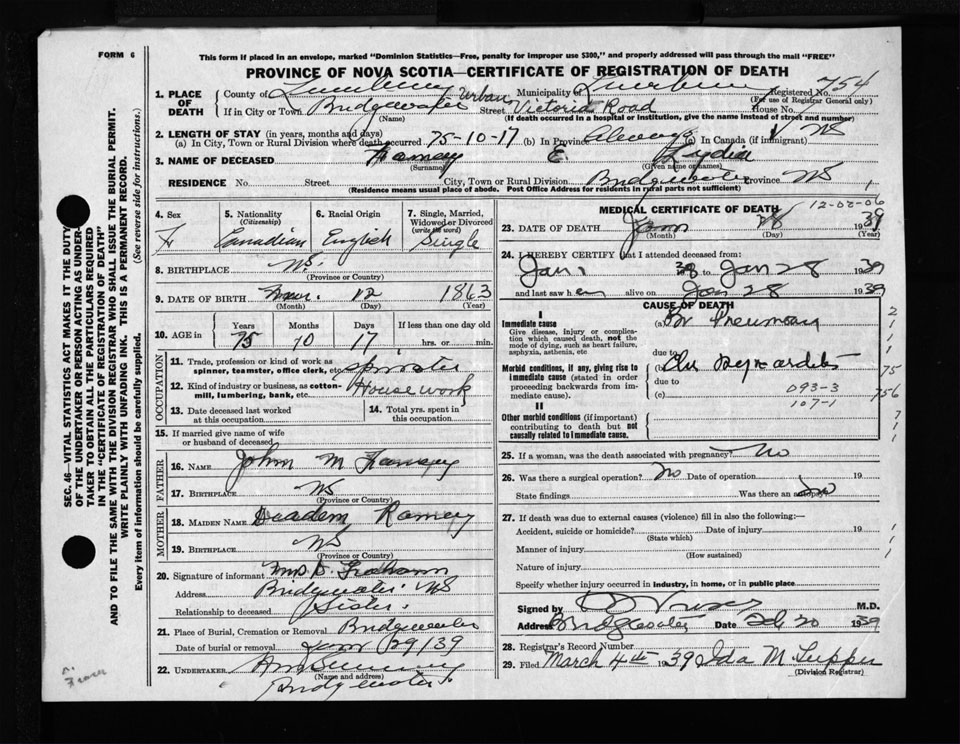 FORM 6
This form if placed in an envelope, marked "Dominion Statistics—Free, penalty for improper use $300," and properly addressed will pass through the mail "FREE"
PROVINCE OF NOVA SCOTIA—CERTIFICATE OF REGISTRATION OF DEATH
1. PLACE OF DEATH
County of Lunenburg Urban Municipality of Lunenburg Registered No. 754
(For use of Registrar General only)
If in City or Town Bridgewater Street Victoria Road House No.
(Name) (If death occurred in a hospital or institution, give the name instead of street and number)
2. LENGTH OF STAY (in years, months and days)
(a) In City, Town or Rural Division where death occurred 75-10-17 (b) In Province Always (c) In Canada (if immigrant) NS
3. NAME OF DECEASED Ramey E. Lydia
(Surname) (Given name or names)
RESIDENCE No. Street City, Town or Rural Division Bridgewater Province NS
(Residence means usual place of abode. Post Office Address for residents in rural parts not sufficient)
4. Sex F
5. Nationality (Citizenship) Canadian
6. Racial Origin English
7. Single, Married, Widowed or Divorced (write the word) Single
8. BIRTHPLACE NS.
(Province or Country)
9. DATE OF BIRTH 12 1863
(Month) (Day) (Year)
10. AGE in Years 75 Months 10 Days 17 If less than one day old hrs. or min.
OCCUPATION
11. Trade, profession or kind of work as spinner, teamster, office clerk, etc. spinster
12. Kind of industry or business, as cotton-mill, lumbering, bank, etc. Housework
13. Date deceased last worked at this occupation
14. Total yrs. spent in this occupation
15. If married give name of wife or husband of deceased
FATHER
16. NAME John M Ramey
17. BIRTHPLACE NS
(Province or Country)
MOTHER
18. MAIDEN NAME Diadem Ramey
19. BIRTHPLACE NS
(Province or Country)
20. Signature of informant Mrs Graham
Address Bridgewater NS
Relationship to deceased Sister.
21. Place of Burial, Cremation or Removal Bridgewater
Date of burial or removal Jan 29/39
22. UNDERTAKER
(Name and address)
Bridgewater
MEDICAL CERTIFICATE OF DEATH
23. DATE OF DEATH Jan 28 1939
(Month) (Day) (Year)
24. I HEREBY CERTIFY that I attended deceased from:
Jan to Jan 28 1939
and last saw her alive on Jan 28 1939
CAUSE OF DEATH
I
Immediate cause (a) Br Pneumonia
Give disease, injury or complication which caused death, not the mode of dying, such as heart failure, asphyxia, asthenia, etc
due to
Morbid conditions, if any, giving rise to immediate cause (stated in order proceeding backwards from immediate cause). (b) Chr Myocarditis 75
due to 093-3
(c) 107-1 756
II
Other morbid conditions (if important) contributing to death but not causally related to immediate cause.
25. If a woman, was the death associated with pregnancy? No
26. Was there a surgical operation? No Date of operation 19
State findings Was there an autopsy? No
27. If death was due to external causes (violence) fill in also the following:—
Accident, suicide or homicide? Date of injury 19
(State which)
Manner of injury
(How sustained)
Nature of injury
Specify whether injury occurred in industry, in home, or in public place
Signed by M.D.
Address Bridgewater Date Feb 20 1939
28. Registrar's Record Number
29. Filed March 4th 1939 Ida M Tupper
(Division Registrar)
SEC. 46—VITAL STATISTICS ACT MAKES IT THE DUTY OF THE UNDERTAKER OR PERSON ACTING AS UNDERTAKER TO OBTAIN ALL THE PARTICULARS REQUIRED IN THE "CERTIFICATE OF REGISTRATION OF DEATH" AND TO FILE THE SAME WITH THE DIVISION REGISTRAR WHO SHALL ISSUE THE BURIAL PERMIT.
WRITE PLAINLY WITH UNFADING INK. THIS IS A PERMANENT RECORD.
Every item of information should be carefully supplied. (See reverse side for instructions.)